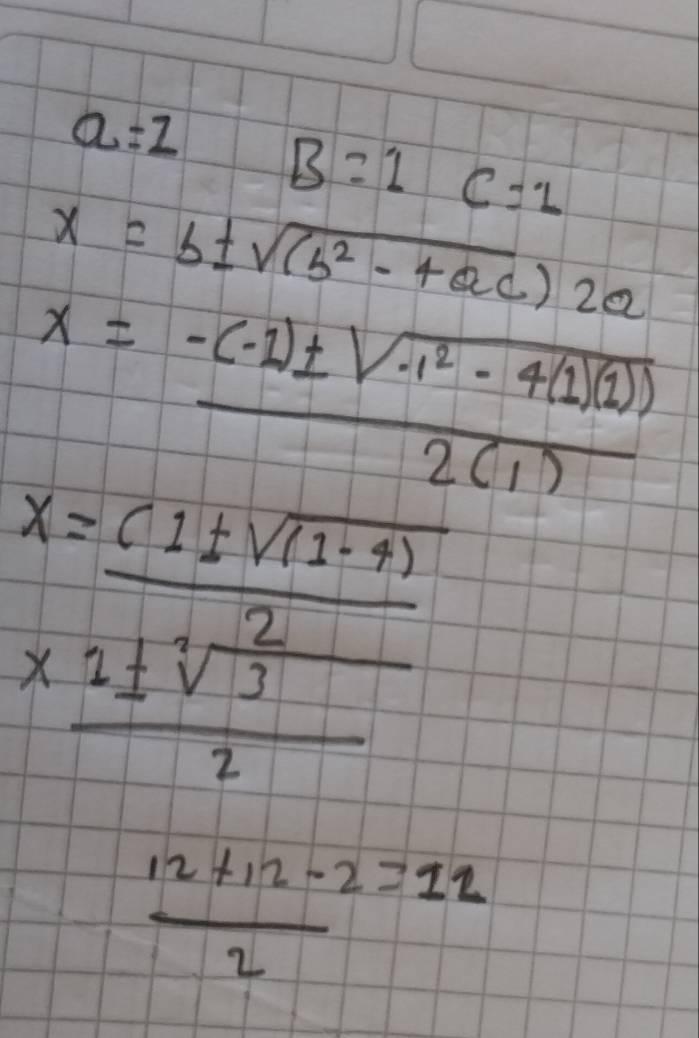 a=1 B=1 C=1
x = b±√(b² - 4ac) 2a
x = -(-1)± √-1² - 4(1)(1))
2(1)
x= (1±√(1-4)
2
x 1± ²√3
2
12+12-2=11
2